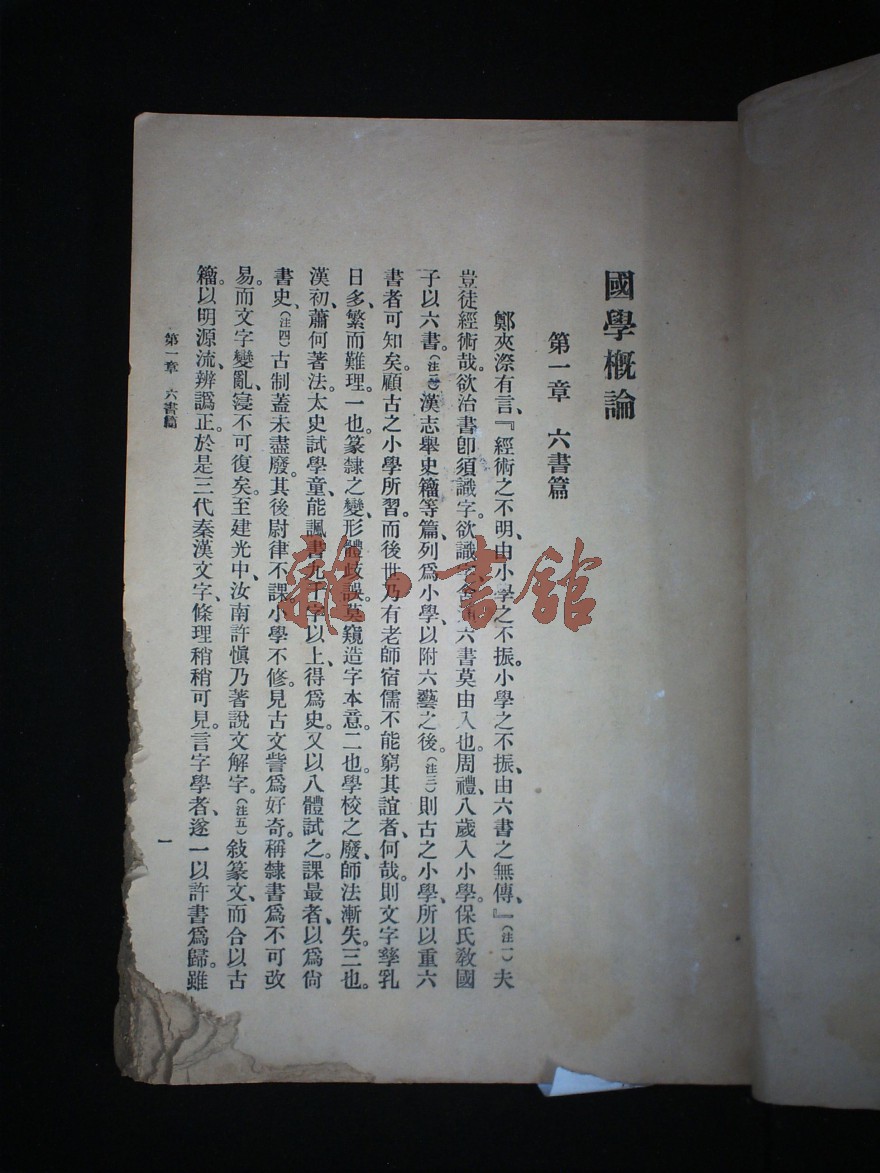 國學概論
第一章 六書篇
鄭夾漈有言、『經術之不明、由小學之不振。小學之不振、由六書之無傳、』（注一）夫
豈徒經術哉。欲治書卽須識字、欲識字舍六書莫由入也。周禮、八歲入小學。保氏敎國
子以六書。（注二）漢志舉史籀等篇、列爲小學、以附六藝之後。（注三）則古之小學、所以重六
書者可知矣。顧古之小學所習。而後世乃有老師宿儒不能窮其誼者、何哉。則文字孳乳
日多、繁而難理。一也。篆隸之變、形體歧誤、莫窺造字本意。二也。學校之廢、師法漸失。三也。
漢初、蕭何著法。太史試學童、能諷書九千字以上、得爲史。又以八體試之。課最者、以爲尙
書史、（注四）古制蓋未盡廢。其後尉律不課。小學不修。見古文訾爲好奇。稱隸書爲不可改
易。而文字變亂、寖不可復矣。至建光中、汝南許愼乃著說文解字。（注五）敍篆文、而合以古
籀。以明源流、辨譌正。於是三代秦漢文字、條理稍稍可見。言字學者、遂一以許書爲歸。雖
第一章 六書篇
一
雜·書館